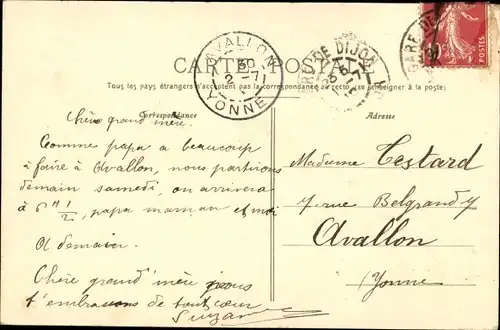 CARTE POSTALE
Tous les pays étrangers n'acceptent pas la correspondance au recto (se renseigner à la poste)
Correspondance
Adresse
AVALLON
30
2-7
YONNE
GARE DE DIJON
GARE DE
Chère grand'mère
Comme papa a beaucoup
à faire à Avallon, nous partirons
demain samedi, on arrivera
à 6 h 1/2, papa maman et moi
A demain.
Chère grand'mère nous
t'embrassons de tout cœur
Suzanne
Madame Testard
7 rue Belgrand 7
Avallon
Yonne